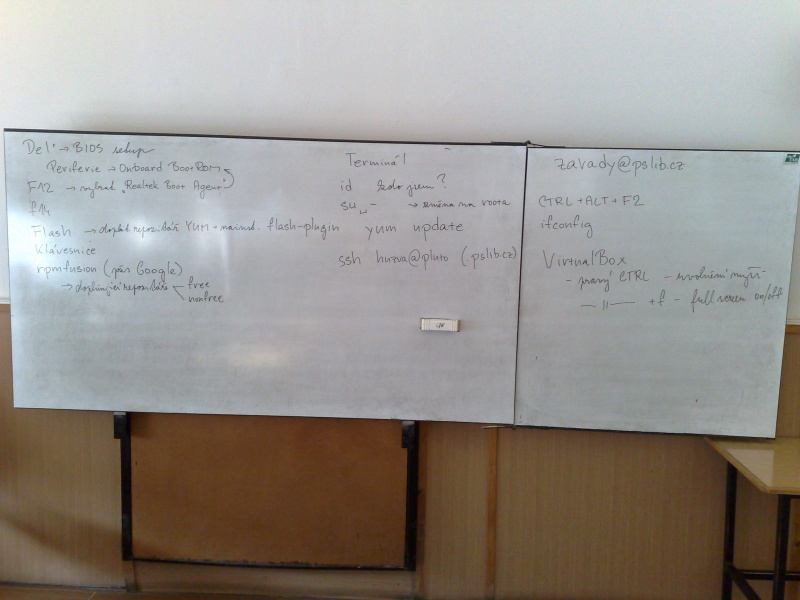 Del → BIOS setup
Periferie → Onboard BootROM
F12 → vybrat "Realtek Boot Agent"
f14
Flash → doplnit repozitář YUM + nainst. flash-plugin
Klávesnice
rpmfusion (přes Google)
→ doplňující repozitáře free
nonfree
Terminál
id kdo jsem?
su␣- → změna na roota
yum update
ssh hurva@pluto (.pslib.cz)
zavady@pslib.cz
CTRL + ALT + F2
ifconfig
VirtualBox
- pravý CTRL - uvolnění myši
— || — + f - full screen on/off